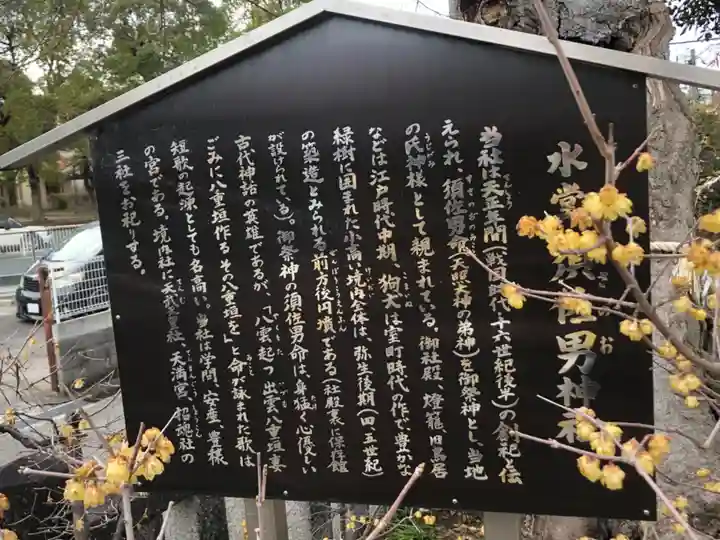 水堂須佐男神社
当社は天正年間(戦国時代・十六世紀後半)の創祀と伝
えられ、須佐男命(天照大神の弟神)を御祭神とし、当地
の氏神様として親まれている。御社殿、燈籠、旧鳥居
などは江戸時代中期、狛犬は室町時代の作で豊かな
緑樹に囲まれた小高い境内全体は、弥生後期(四・五世紀)
の築造とみられる前方後円墳である(社殿裏に保存館
が設けられている)御祭神の須佐男命は、勇猛で心優しい
古代神話の英雄であるが、「八雲起つ出雲八重垣妻
ごみに八重垣作るその八重垣を」と命が詠まれた歌は
短歌の起源としても名高い。当社は学問、安産、豊穣
の宮である。境内社に天武天皇社、天満宮、稲地社の
三社をお祀りする。